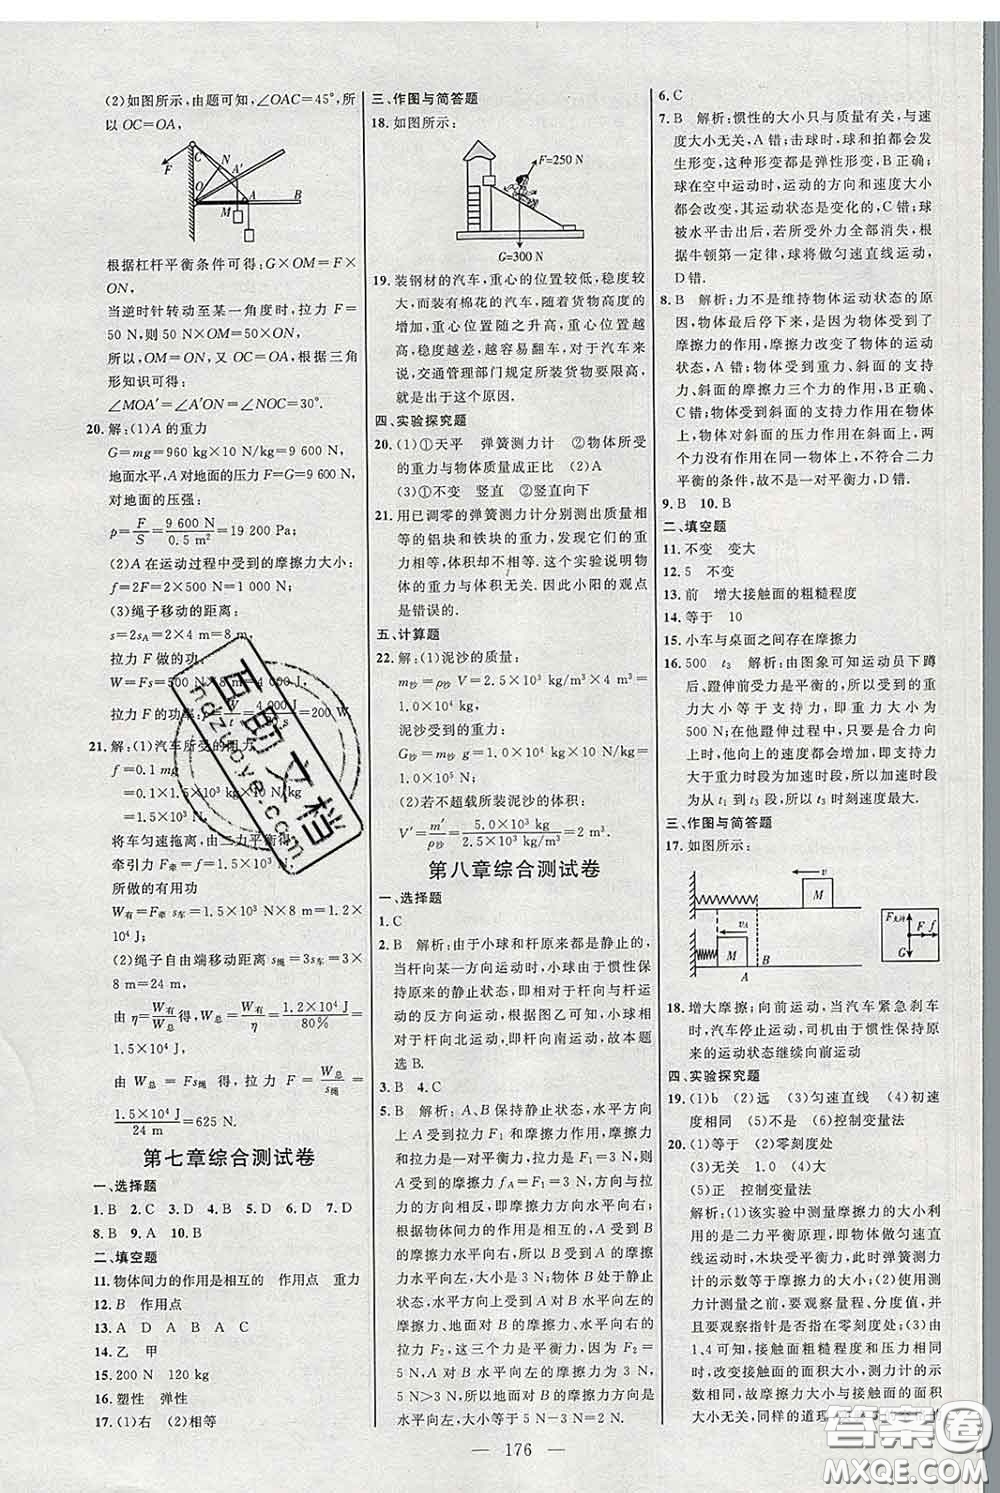 (2)如图所示,由题可知,∠OAC=45°,所
以OC=OA,
C N
F A′
O
M A B
根据杠杆平衡条件可得:G×OM=F×
ON,
当逆时针转动至某一角度时,拉力F=
50 N,则50 N×OM=50×ON,
所以,OM=ON,又OC=OA,根据三角
形知识可得:
∠MOA′=∠A′ON=∠NOC=30°.
20.解:(1)A的重力
G=mg=960 kg×10 N/kg=9 600 N,
地面水平,A对地面的压力F=G=9 600 N,
对地面的压强:
p=F/S=9 600 N/0.5 m²=19 200 Pa;
(2)A在运动过程中受到的摩擦力大小:
f=2F=2×500 N=1 000 N;
(3)绳子移动的距离:
s=2sA=2×4 m=8 m,
拉力F做的功:
W=Fs=500 N×8 m=4 000 J,
拉力F的功率:=W/t=4 000 J/ s=200 W
21.解:(1)汽车所受的阻力
f=0.1 mg
=0.1×1.5×10³ ×10 N/kg
=1.5×10³ N,
将车匀速拖离,由二力平衡得:
牵引力F牵=f=1.5×10³ N,
所做的有用功
W有=F牵s车=1.5×10³ N×8 m=1.2×
10⁴ J,
(2)绳子自由端移动距离s绳=3s车=3×
8 m=24 m,
由η=W有/W总得,W总=W有/η=1.2×10⁴ J/80%=
1.5×10⁴ J,
由 W总=Fs绳 得,拉力 F=W总/s绳=
1.5×10⁴ J/24 m=625 N.
第七章综合测试卷
一、选择题
1.B 2.C 3.D 4.B 5.D 6.D 7.D
8.B 9.A 10.B
二、填空题
11.物体间力的作用是相互的 作用点 重力
12.B 作用点
13.A D A B A C
14.乙 甲
15.200 N 120 kg
16.塑性 弹性
17.(1)右 (2)相等
三、作图与简答题
18.如图所示:
F=250 N
G=300 N
19.装钢材的汽车,重心的位置较低,稳度较
大,而装有棉花的汽车,随着货物高度的
增加,重心位置随之升高,重心位置越
高,稳度越差,越容易翻车,对于汽车来
说,交通管理部门规定所装货物要限高,
就是出于这个原因.
四、实验探究题
20.(1)①天平 弹簧测力计 ②物体所受
的重力与物体质量成正比 (2)A
(3)①不变 竖直 ②竖直向下
21.用已调零的弹簧测力计分别测出质量相
等的铝块和铁块的重力,发现它们的重
力相等,体积却不相等.这个实验说明物
体的重力与体积无关.因此小阳的观点
是错误的.
五、计算题
22.解:(1)泥沙的质量:
m砂=ρ砂V=2.5×10³ kg/m³×4 m³=
1.0×10⁴ kg
泥沙的重力:
G砂=m砂g=1.0×10⁴ kg×10 N/kg=
1.0×10⁵ N
(2)若不超载所装泥沙的体积:
V′=m′/ρ砂=5.0×10³ kg/2.5×10³ kg/m³=2 m³.
第八章综合测试卷
一、选择题
1.C
2.B 解析:由于小球和杆原来都是静止的,
当杆向某一方向运动时,小球由于惯性保
持原来的静止状态,即相对于杆向与杆运
动的反方向运动,根据图乙可知,小球相
对于杆向北运动,即杆向南运动,故本题
选B.
3.B 4.C
5.B 解析:A、B保持静止状态,水平方向
上A受到拉力F₁和摩擦力作用,摩擦力
与拉力是一对平衡力,由于拉力F₁=3 N,
A受到的摩擦力fA=F₁=3 N,且与拉力
的方向相反,即方向是水平向左的;
根据物体间力的作用是相互的,A受到B
的摩擦力水平向左,则B受到A对其的
摩擦力水平向右,所以B受到A的摩擦
力水平向右,大小是3 N;物体B处于静止
状态,水平方向上B受水平向右的摩擦
力、地面对B的摩擦力和水平向左的
拉力F₂,这三个力平衡,由于F₂=
5 N,A对B水平向右的摩擦力是3 N,
5 N>3 N,所以地面对B的摩擦力应水平
向右,大小等于5 N-3 N=2 N.
6.C
7.B 解析:惯性的大小只与质量有关,与速
度大小无关,A错;击球时,球和拍都会
发生形变,这种形变都是弹性形变,B正确;
球在空中运动时,运动的方向和速度大小
都会改变,其运动状态是变化的,C错;球
被水平击出后,若所受外力全部消失,根
据牛顿第一定律,球将做匀速直线运动,
D错.
8.B 解析:力不是维持物体运动状态的原
因,物体最后停下来,是因为物体受到了
摩擦力的作用,摩擦力改变了物体的运动
状态,A错;物体受到重力、斜面的支持
力、斜面的摩擦力三个力的作用,B正确、
C错;物体受到斜面的支持力作用在物体
上,物体对斜面的压力作用在斜面上,两
力没有作用在同一物体上,不符合二力
平衡的条件,故不是一对平衡力,D错.
9.B 10.B
二、填空题
11.不变 变大
12.5 不变
13.前 增大接触面的粗糙程度
14.等于 10
15.小车与桌面之间存在摩擦力
16.500 t₃ 解析:由图象可知运动员下蹲
后、蹬伸前受力是平衡的,支持力大小为
500 N,重力等于支持力,即重力大小为
500 N;在他蹬伸过程中,只要是合力向
上时,他向上的速度都会增加,即支持力
大于重力时段为加速时段,所以加速时段
为从t₁到t₃时段,所以t₃时刻速度最大.
三、作图与简答题
17.如图所示:
v
M
vA
M
A B
F支持
F f
G
18.增大摩擦;向前运动,当汽车紧急刹车
时,汽车停止运动,司机由于惯性保持原
来的运动状态继续向前运动
四、实验探究题
19.(1)b (2)远 (3)匀速直线 (4)初速
度相同 (5)不是 (6)控制变量法
20.(1)等于 (2)零刻度处
(3)无关 1.0 (4)大
(5)正 控制变量法
解析:(1)该实验中测量摩擦力的大小利
用的是二力平衡原理,即物体做匀速直
线运动,木块受平衡力,此时弹簧测力计
的示数等于摩擦力的大小;(2)使用测力
计测量之前,要观察量程、分度值,并且
要观察指针是否指在零刻度处;(3)由
1、4可知,接触面粗糙程度、压力相同
时,改变接触面的面积大小,测力计的示
数不变,所以摩擦力的大小与接触面积
大小无关,同样的道理
— 176 —
互助文档
hdzuoye.com
答案圈
MXQE.COM